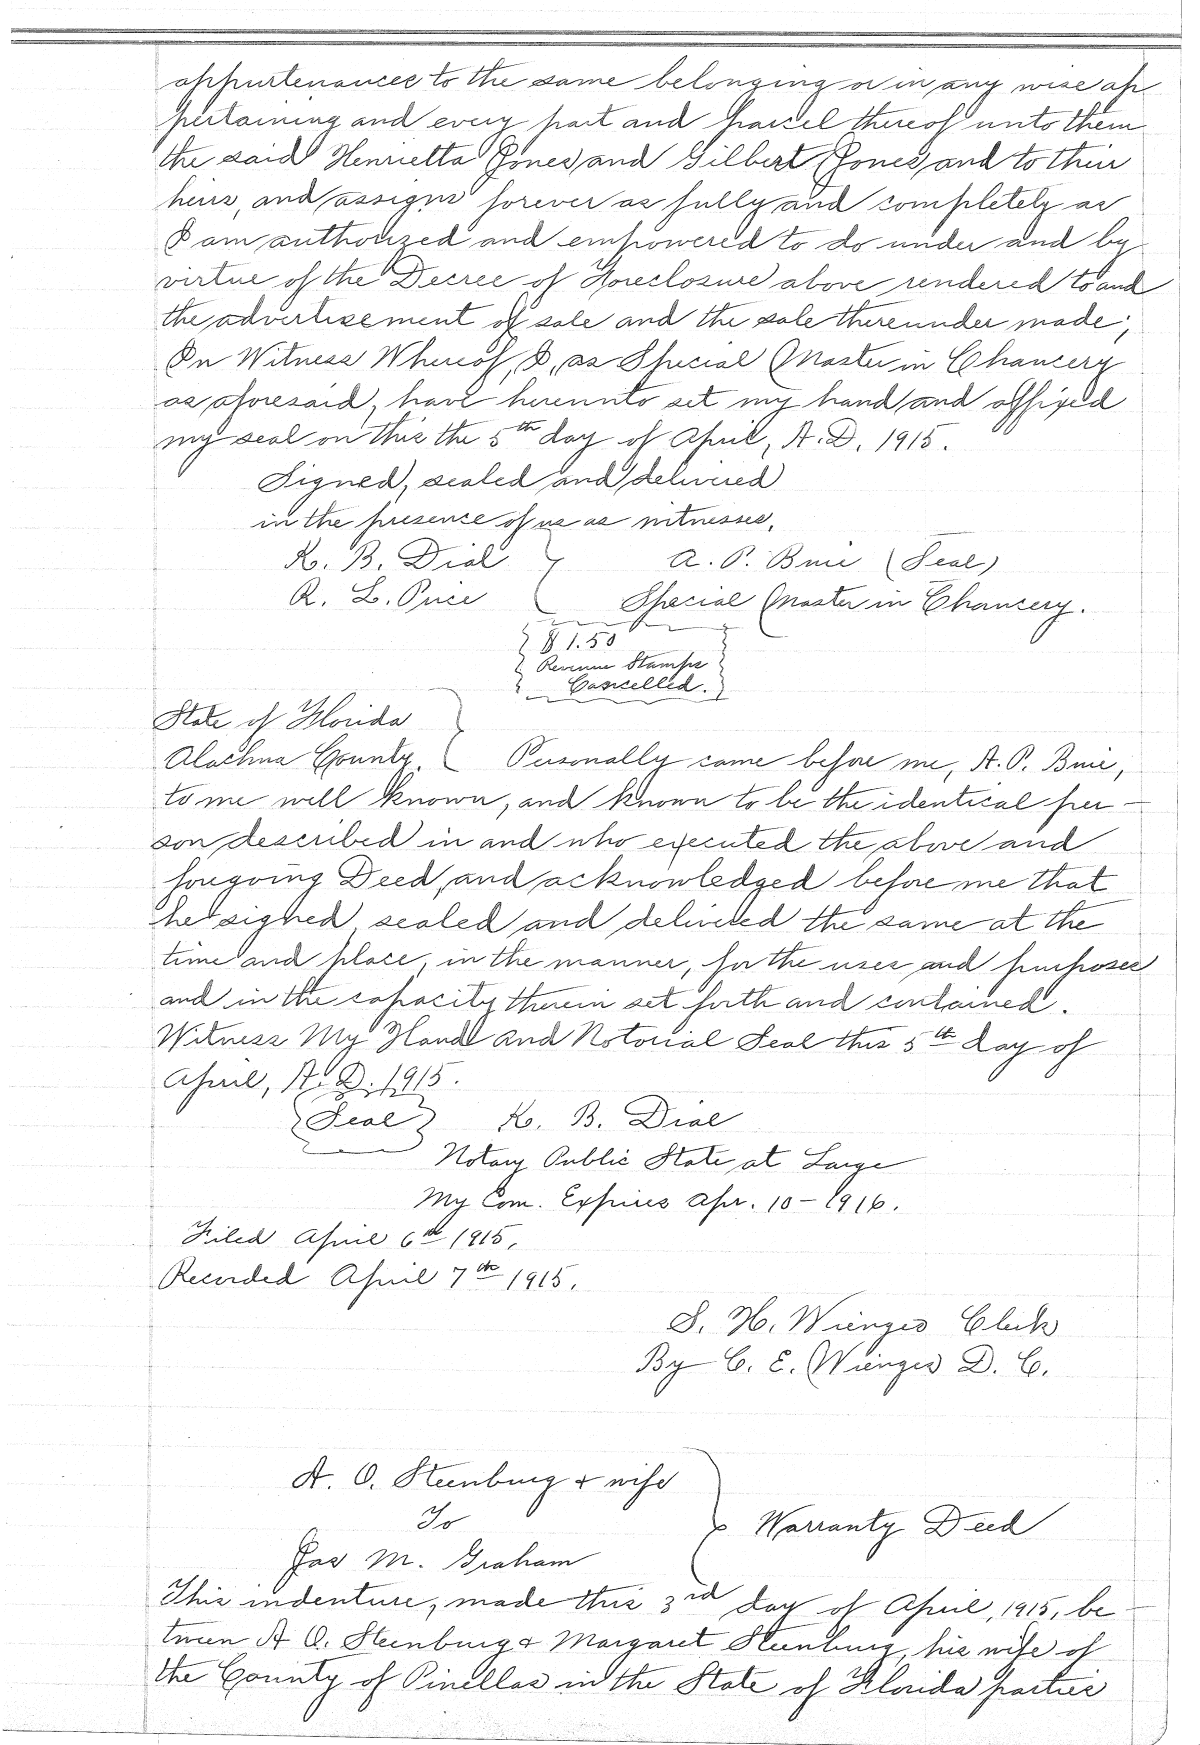 appurtenances to the same belonging or in any wise ap
pertaining and every part and parcel thereof unto them
the said Henrietta Jones and Gilbert Jones and to their
heirs, and assigns forever as fully and completely as
I am authorized and empowered to do under and by
virtue of the Decree of Foreclosure above rendered to and
the advertisement of sale and the sale thereunder made;
In Witness Whereof, I, as Special Master in Chancery
as aforesaid, have hereunto set my hand and affixed
my seal on this the 5th day of April, A.D. 1915.
Signed, sealed and delivered
in the presence of us as witnesses,
K. B. Dial
A. P. Buie (Seal)
R. L. Price
Special Master in Chancery.
$1.50
Revenue Stamps
Cancelled.
State of Florida
Alachua County. Personally came before me, A. P. Buie,
to me well known, and known to be the identical per-
son described in and who executed the above and
foregoing Deed, and acknowledged before me that
he signed, sealed and delivered the same at the
time and place, in the manner, for the uses and purposes
and in the capacity therein set forth and contained.
Witness My Hand and Notorial Seal this 5th day of
April, A. D. 1915.
(Seal) K. B. Dial
Notary Public State at Large
My Com. Expires Apr. 10-1916.
Filed April 6th 1915.
Recorded April 7th 1915.
S. H. Wienges Clerk
By C. E. Wienges D. C.
A. O. Steenburg & wife
To
Warranty Deed
Jas M. Graham
This indenture, made this 3rd day of April, 1915, be-
tween A O. Steenburg & Margaret Steenburg, his wife of
the County of Pinellas in the State of Florida parties